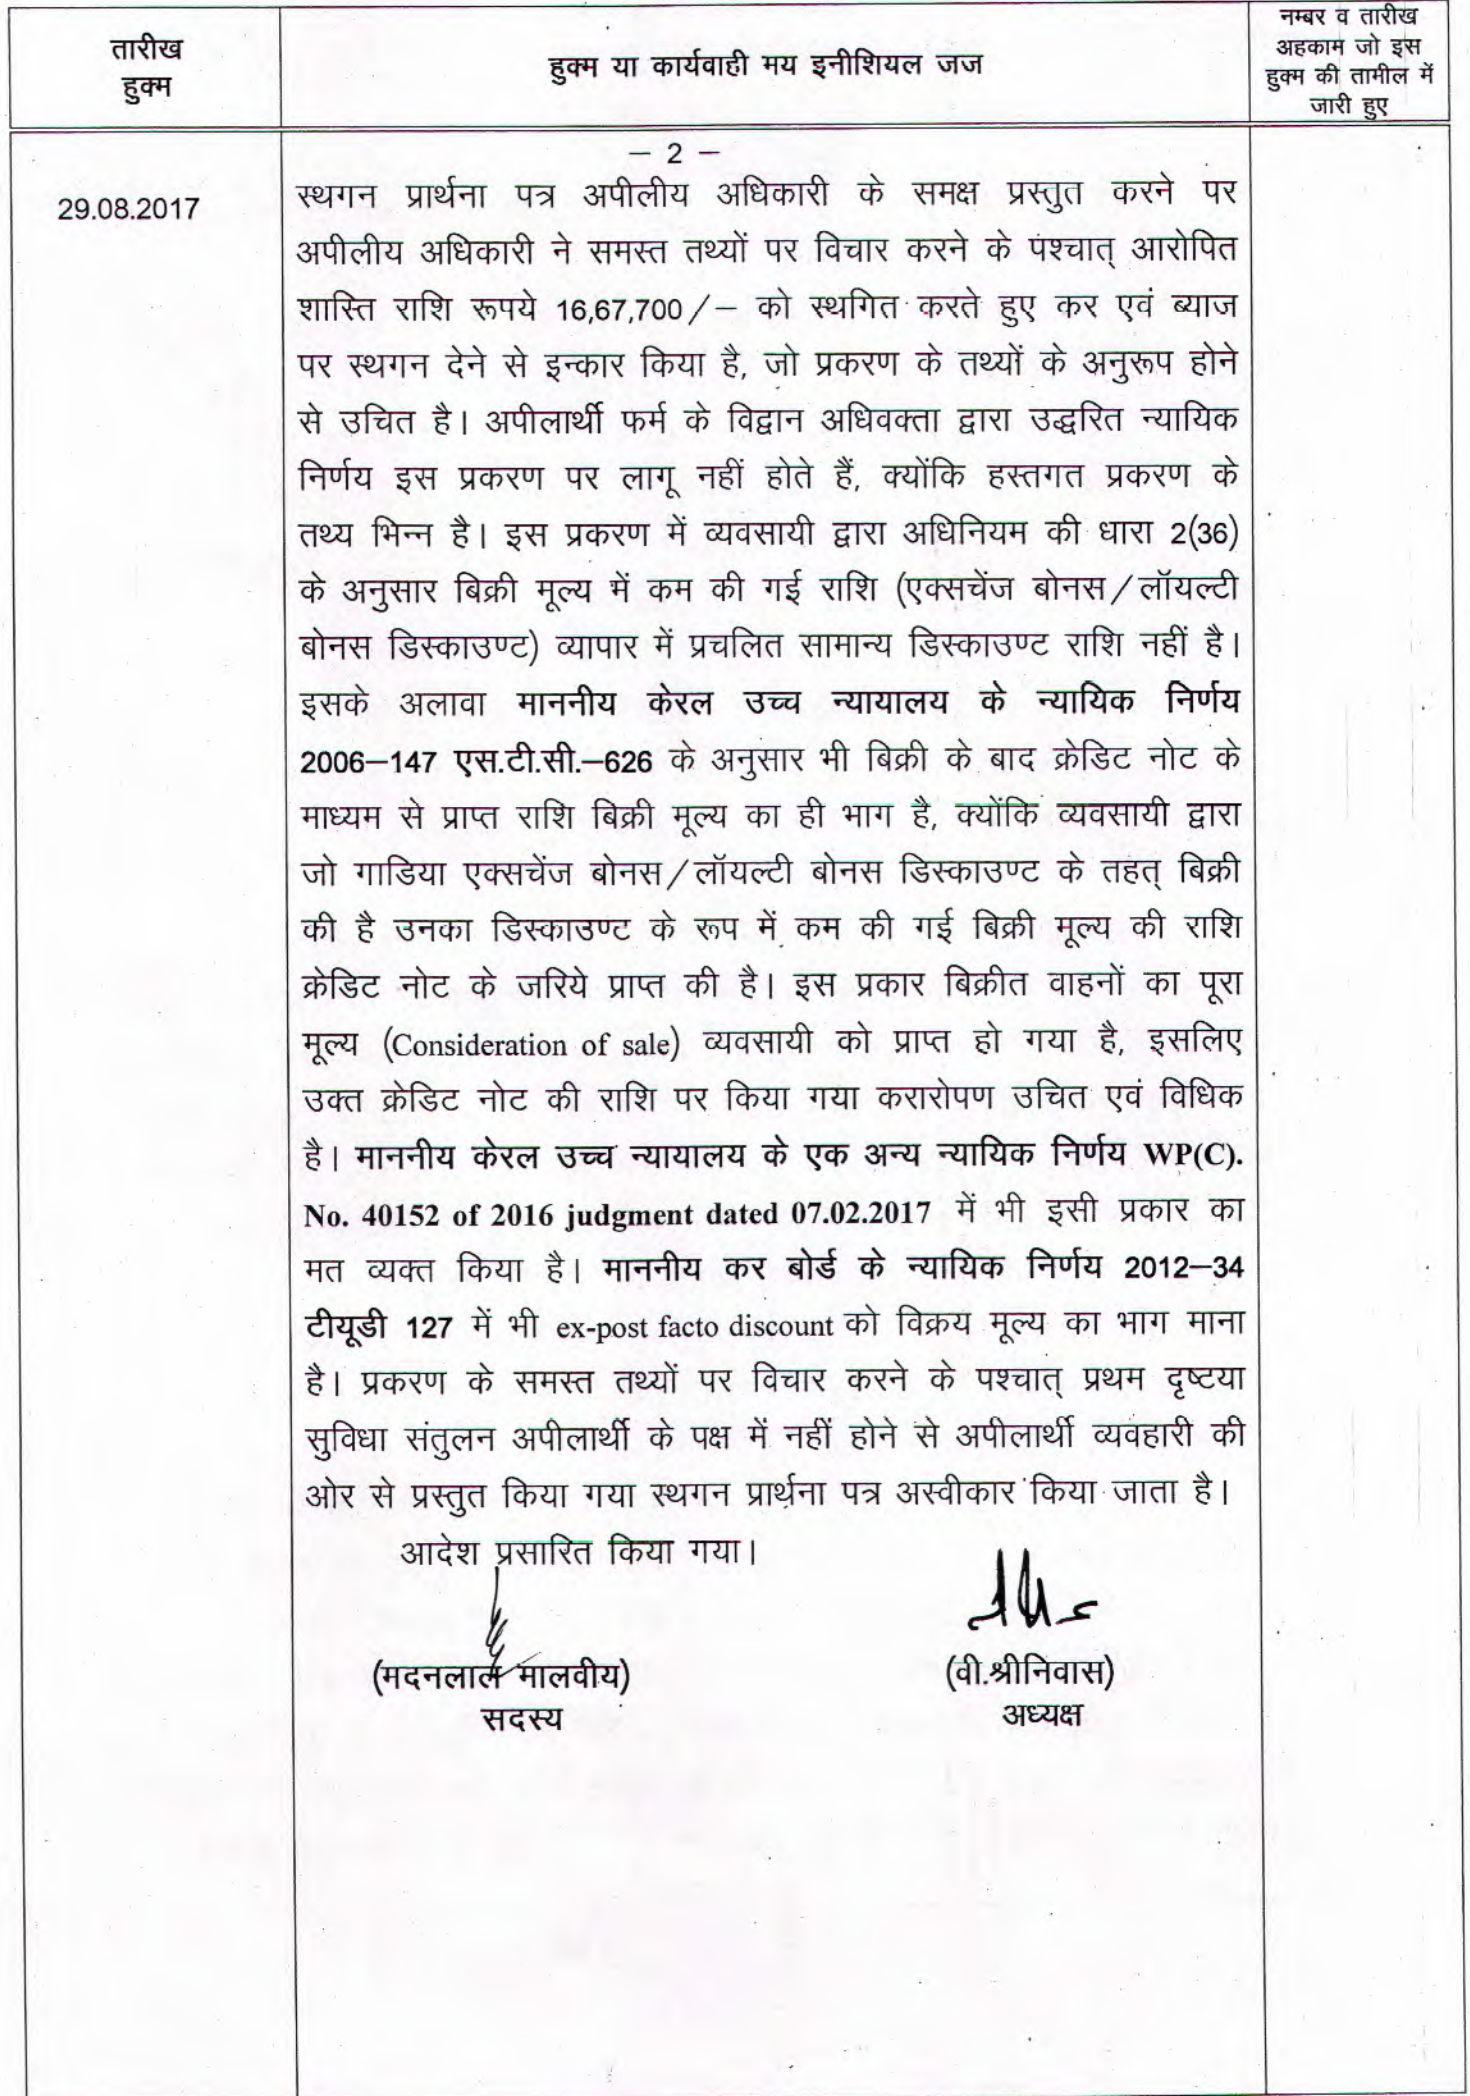 तारीख
हुक्म
हुक्म या कार्यवाही मय इनीशियल जज
नम्बर व तारीख
अहकाम जो इस
हुक्म की तामील में
जारी हुए
– 2 –
29.08.2017
स्थगन प्रार्थना पत्र अपीलीय अधिकारी के समक्ष प्रस्तुत करने पर
अपीलीय अधिकारी ने समस्त तथ्यों पर विचार करने के पश्चात् आरोपित
शास्ति राशि रूपये 16,67,700/– को स्थगित करते हुए कर एवं ब्याज
पर स्थगन देने से इन्कार किया है, जो प्रकरण के तथ्यों के अनुरूप होने
से उचित है। अपीलार्थी फर्म के विद्वान अधिवक्ता द्वारा उद्धरित न्यायिक
निर्णय इस प्रकरण पर लागू नहीं होते हैं, क्योंकि हस्तगत प्रकरण के
तथ्य भिन्न है। इस प्रकरण में व्यवसायी द्वारा अधिनियम की धारा 2(36)
के अनुसार बिक्री मूल्य में कम की गई राशि (एक्सचेंज बोनस/लॉयल्टी
बोनस डिस्काउण्ट) व्यापार में प्रचलित सामान्य डिस्काउण्ट राशि नहीं है।
इसके अलावा माननीय केरल उच्च न्यायालय के न्यायिक निर्णय
2006–147 एस.टी.सी.–626 के अनुसार भी बिक्री के बाद क्रेडिट नोट के
माध्यम से प्राप्त राशि बिक्री मूल्य का ही भाग है, क्योंकि व्यवसायी द्वारा
जो गाडिया एक्सचेंज बोनस/लॉयल्टी बोनस डिस्काउण्ट के तहत् बिक्री
की है उनका डिस्काउण्ट के रूप में कम की गई बिक्री मूल्य की राशि
क्रेडिट नोट के जरिये प्राप्त की है। इस प्रकार बिक्रीत वाहनों का पूरा
मूल्य (Consideration of sale) व्यवसायी को प्राप्त हो गया है, इसलिए
उक्त क्रेडिट नोट की राशि पर किया गया करारोपण उचित एवं विधिक
है। माननीय केरल उच्च न्यायालय के एक अन्य न्यायिक निर्णय WP(C).
No. 40152 of 2016 judgment dated 07.02.2017 में भी इसी प्रकार का
मत व्यक्त किया है। माननीय कर बोर्ड के न्यायिक निर्णय 2012–34
टीयूडी 127 में भी ex-post facto discount को विक्रय मूल्य का भाग माना
है। प्रकरण के समस्त तथ्यों पर विचार करने के पश्चात् प्रथम दृष्टया
सुविधा संतुलन अपीलार्थी के पक्ष में नहीं होने से अपीलार्थी व्यवहारी की
ओर से प्रस्तुत किया गया स्थगन प्रार्थना पत्र अस्वीकार किया जाता है।
आदेश प्रसारित किया गया।
(मदनलाल मालवीय)
सदस्य
(वी.श्रीनिवास)
अध्यक्ष